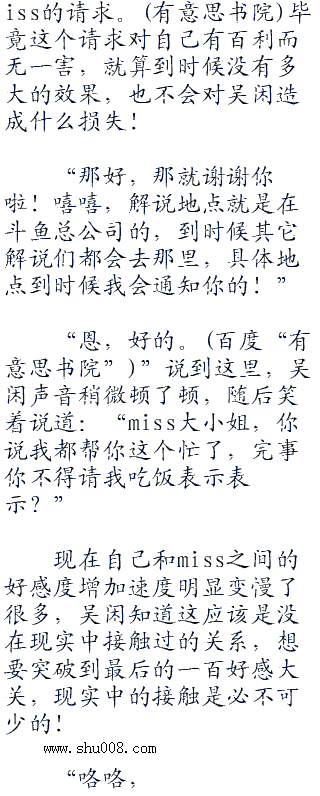 iss的请求。(有意思书院)毕
竟这个请求对自己有百利而
无一害，就算到时候没有多
大的效果，也不会对吴闲造
成什么损失！
“那好，那就谢谢你
啦！嘻嘻，解说地点就是在
斗鱼总公司的，到时候其它
解说们都会去那里，具体地
点到时候我会通知你的！”
“恩，好的。(百度“有
意思书院”)”说到这里，吴
闲声音稍微顿了顿，随后笑
着说道：“miss大小姐，你
说我都帮你这个忙了，完事
你不得请我吃饭表示表
示？”
现在自己和miss之间的
好感度增加速度明显变慢了
很多，吴闲知道这应该是没
在现实中接触过的关系，想
要突破到最后的一百好感大
关，现实中的接触是必不可
少的！
www.shu008.com
“咯咯，